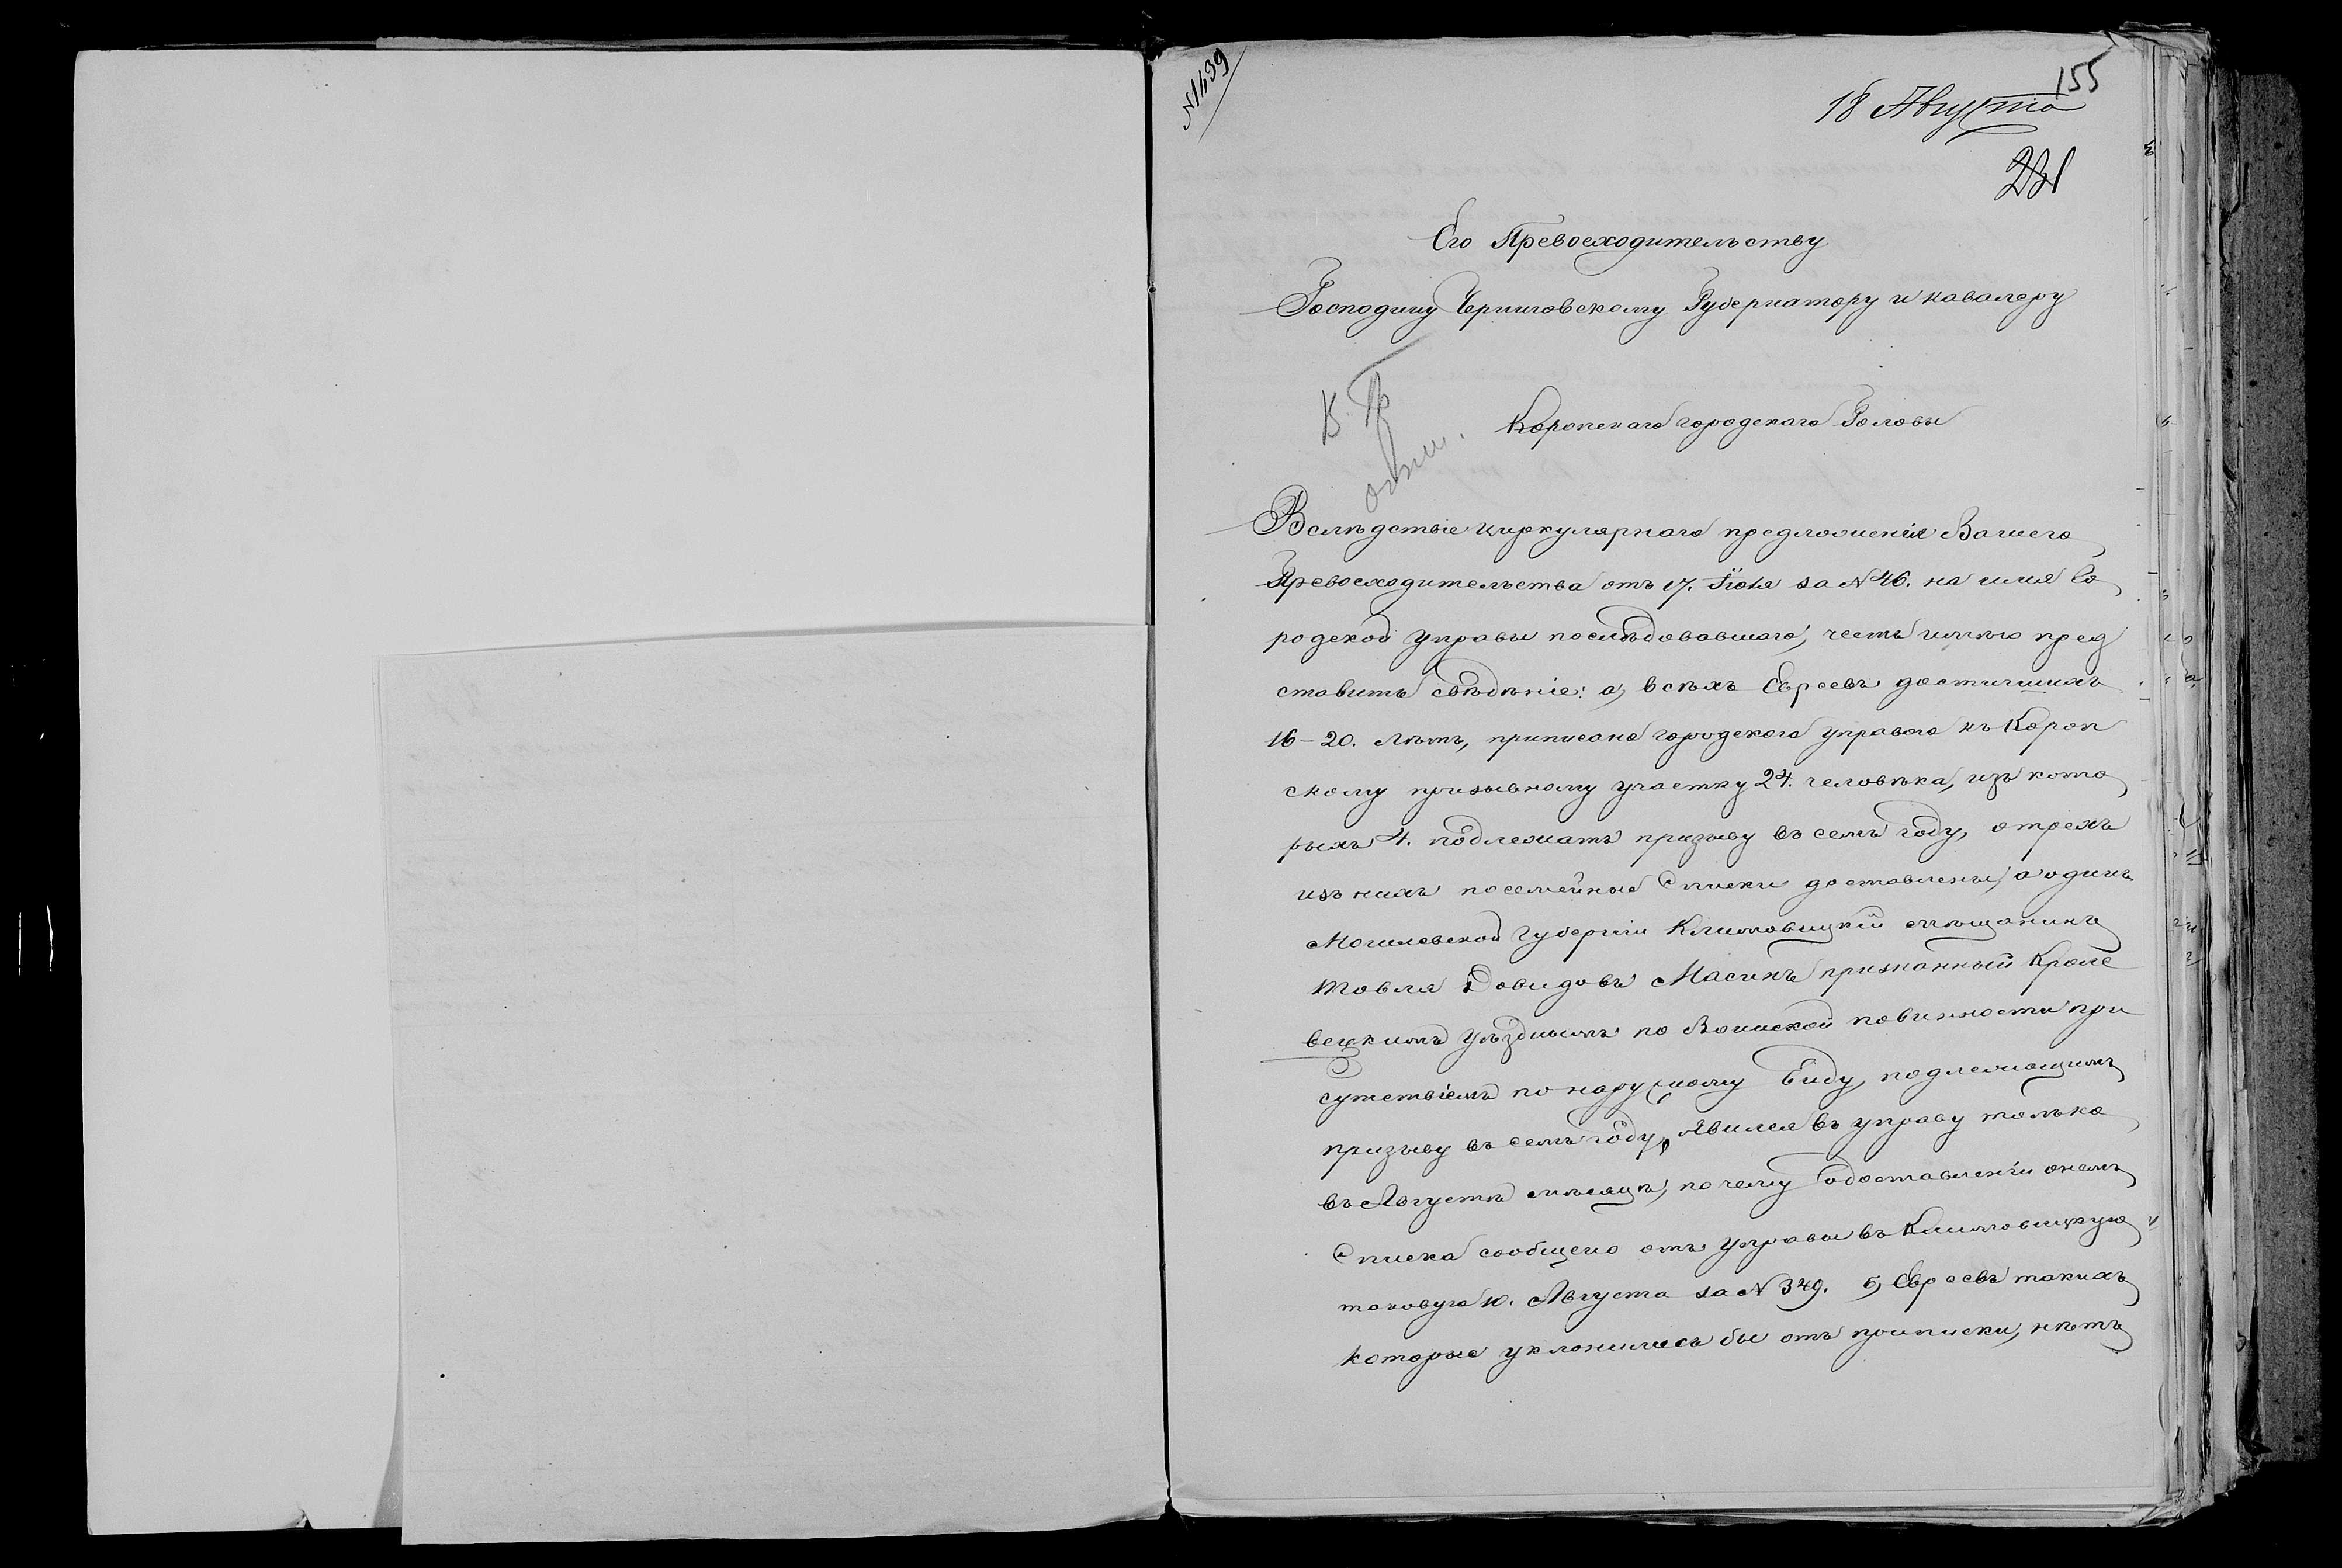 №1439
155
18 Августа
231
Его Превосходительству
Господину Черниговскому Губернатору и кавалеру
К. Гр
Коропскаго городскаго Головы
Вслѣдствіе циркулярнаго предложенія Вашего
Превосходительства отъ 17. Іюля за №46. на имя Го
родской управы послѣдовавшаго, честь имѣю пред
ставить свѣдѣніе: а, всѣхъ Евреевъ достигшихъ
16-20. лѣтъ, приписано городскою управою къ Короп
скому призывному участку 24. человѣка, изъ кото
рыхъ 4. подлежатъ призыву въ семъ году, о трехъ
изъ нихъ посемейные Списки доставлены, а одинъ
Могилевской губерніи Климовицкій мѣщанинъ
Товля Довидовъ Масинъ признанный Кроле
вецкимъ уѣзднымъ по Воинской повинности при
сутствіемъ по наружному виду, подлежащимъ
призыву въ семъ году, явился въ управу только
въ Августѣ мѣсяцѣ, почему о доставленіи онемъ
Списка сообщено отъ управы въ Климовицкую
таковую 10. Августа за №349. б, Евреевъ такихъ
которые уклонились бы отъ приписки, нѣтъ